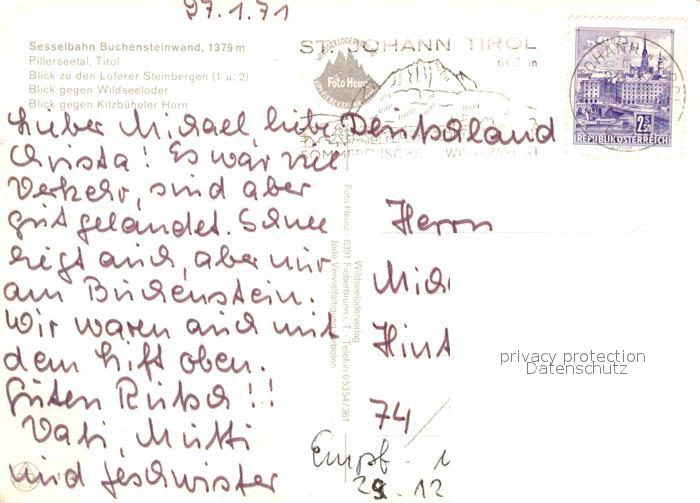 27.1.71
Sesselbahn Buchensteinwand, 1379 m
Pillerseetal, Tirol
Blick zu den Loferer Steinbergen (1 u. 2)
Blick gegen Wildseeloder
Blick gegen Kitzbüheler Horn
ST. JOHANN TIROL
Foto Heinz
REPUBLIK ÖSTERREICH
Lieber Michael, liebe
Christa! Es war viel
Verkehr, sind aber
gut gelandet. Schnee
liegt auch, aber nur
am Buchenstein.
Wir waren auch mit
dem Lift oben.
Guten Rutsch!!
Vati, Mutti
und Geschwister
Wildseeloderverlag
Foto Heinz · 6391 Fieberbrunn i. T. · Telefon 05354/361
Jede Vervielfältigung verboten
Deutschland
Herrn
Mich
Hint
74/
Empf.
29.12
privacy protection
Datenschutz